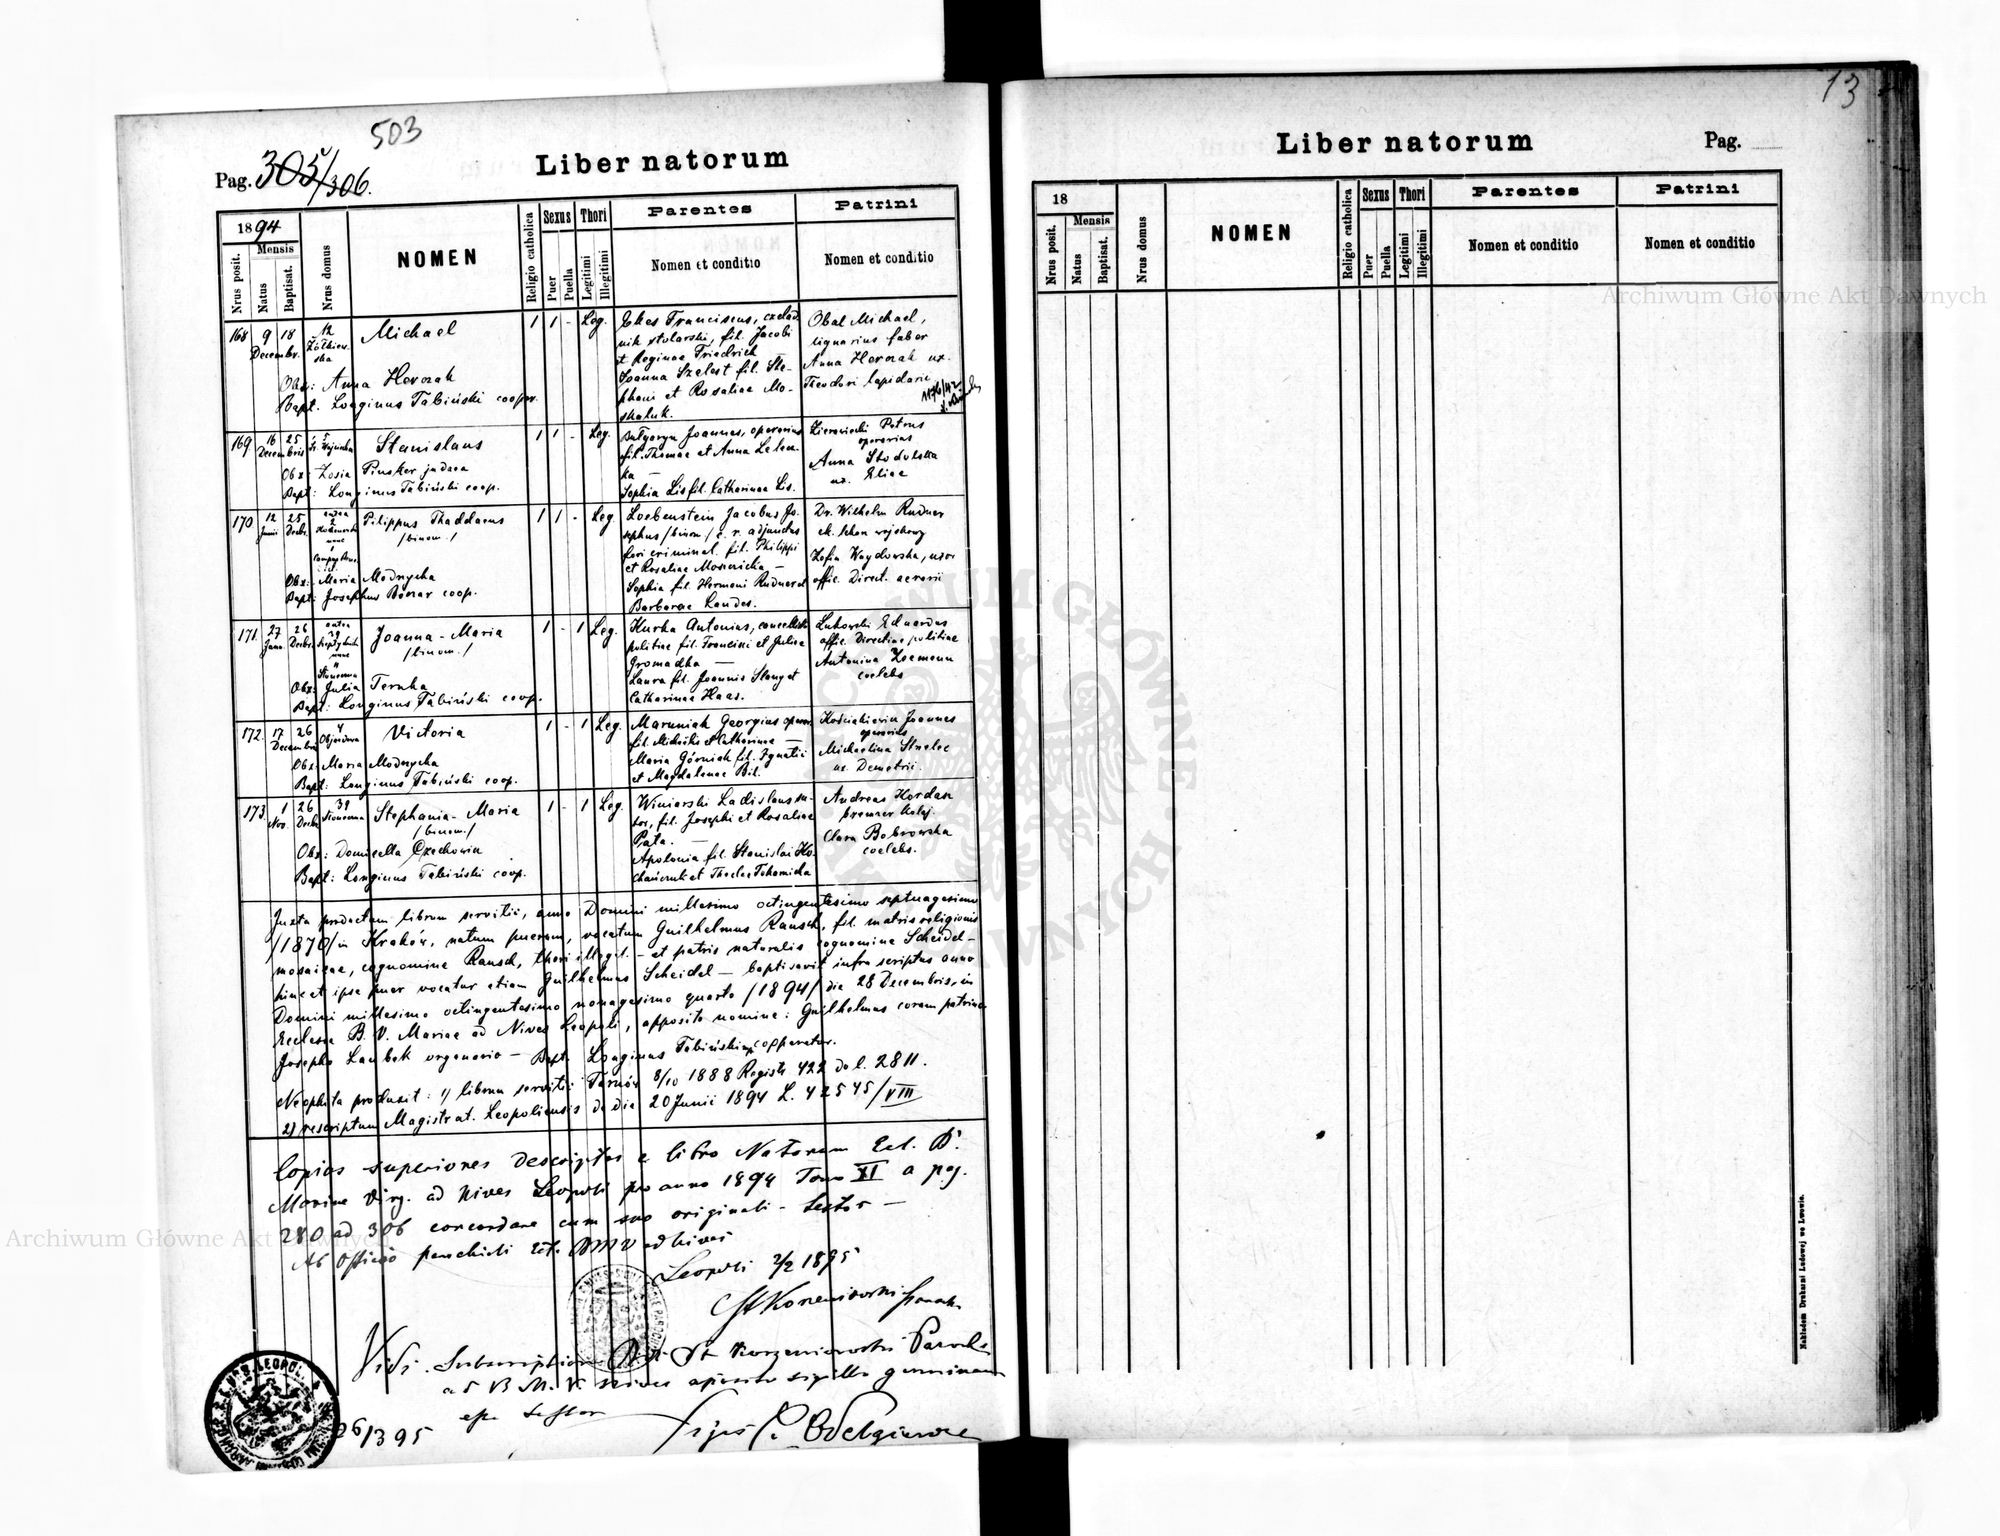 503
Pag. 305/306.
Liber natorum
1894
Mensis
Nrus posit.
Natus
Baptisat.
Nrus domus
NOMEN
Religio catholica
Sexus
Puer
Puella
Thori
Legitimi
Illegitimi
Parentes
Nomen et conditio
Patrini
Nomen et conditio
168 9 18 12 Michael 1 1 - Leg. Franciscus, czelad
Decembr. Żółkiew
ska
nik stolarski, fil. Jacobi
et Reginae Friedrich
Joanna Szelest fil. Ste-
phani et Rosaliae Mo-
skaluk.
Obal Michael,
lignarius faber
Anna Horszak ux.
Teodori lapidarii
1176/42
Obx: Anna Horszak
Bapt. Longinus Tabiński cooper.
169 16 25 5 Stanislaus 1 1 - Leg. Joannes, operarius
Decembris
fil. Thomae et Anna
ka —
Sophia Lis fil. Catharinae Lis.
Petrus
operarius
Anna Stodolska
ux. Eliae
Obx: Zosia Pinsker judaea
Bapt: Longinus Tabiński coop.
170 12 25 Pilippus Thaddaeus 1 1 - Leg. Loebenstein Jacobus Jo-
Junii Decbr. /binom./
sephus /binom/ c. r. adjunctus
fori criminal. fil. Philippi
et Rosaliae —
Sophia fil. Hermani Rudner et
Barbarae Landes.
Dr. Wilhelm Rudner
ck. lekarz wojskowy
Zofia Waydowska, uxor
offic. Direct. aerarii
Obx: Maria Modrycka
Bapt: Josephus coop.
171. 27 26 Joanna-Maria 1 - 1 Leg. Kurka Antonius, concellista
Decbr. /binom./
politiae fil. Francisci et Juliae
Gromadka —
Laura fil. Joannis Slany et
Catharinae Haas.
Lukowski Eduardus
offic. Directiae politiae
Antonina
coelebs
Obx: Julia Ternka
Bapt: Longinus Tabiński coop.
172. 17 26 4 Victoria 1 - 1 Leg. Maruniak Georgius operar.
Decembris Objazdowa
fil. Michaelis et Catharinae —
Maria Górniak fil. Ignatii
et Magdalenae Bil.
Kościakiewicz Joannes
operarius
Michaelina Strelec
ux. Demetrii.
Obx: Maria Modrycka
Bapt: Longinus Tabiński coop.
173. 1 26 39 Stephania-Maria 1 - 1 Leg. Winiarski Ladislaus su-
Nov. Decbr. Słoneczna /binom./
tor, fil. Josephi et Rosaliae
Pata. —
Apolonia fil. Stanislai Ko-
et Theclae
Andreas Kordasz
kolej.
Clara Bobrowska
coelebs.
Obx: Domicella Czechowicz
Bapt: Longinus Tabiński coop.
Juxta productum librum servitii, anno Domini millesimo octingentesimo septuagesimo
/1870/ in Kraków, natum puerum, vocatum Guilhelmus Rausch, fil. matris religionis
mosaicae, cognomine Rausch, thori illegit. — et patris naturalis cognomine Scheidel —
hinc et ipse puer vocatur etiam Guilhelmus Scheidel — baptisavit infra scriptus anno
Domini millesimo octingentesimo nonagesimo quarto /1894/ die 28 Decembris, in
Ecclesia B. V. Mariae ad Nives Leopoli, apposito nomine: Guilhelmus coram patrino
Josepho Laubek organario — Bapt. Longinus Tabiński cooperator.
Neophita produxit: 1/ librum servitii Tarnów 8/10 1888 Registr 422 de l. 2811.
2/ rescriptum Magistrat. Leopoliensis de die 20 Junii 1894 L. 42545/VIII
Copias superiores descriptas e libro Natorum Ecl. B.
Mariae Virg. ad Nives Leopoli pro anno 1894 Tomo XI a pag.
280 ad 306 concordare cum suo originali — testor —
Ab Officio parochiali Eccl. BMV ad Nives
Leopoli 2/2 1895
St Korzeniowski Paroch.
Vidi. Subscriptionem St Korzeniowski Parochi
ad B. M. V. Nives aposito sigillo genuinam
esse testor
26/3 95
13
Liber natorum
Pag.
18
Mensis
Nrus posit.
Natus
Baptisat.
Nrus domus
NOMEN
Religio catholica
Sexus
Puer
Puella
Thori
Legitimi
Illegitimi
Parentes
Nomen et conditio
Patrini
Nomen et conditio
Nakładem Drukarni Ludowej we Lwowie.
Archiwum Główne Akt Dawnych
Archiwum Główne Akt Dawnych
ARCHIWUM GŁÓWNE AKT DAWNYCH